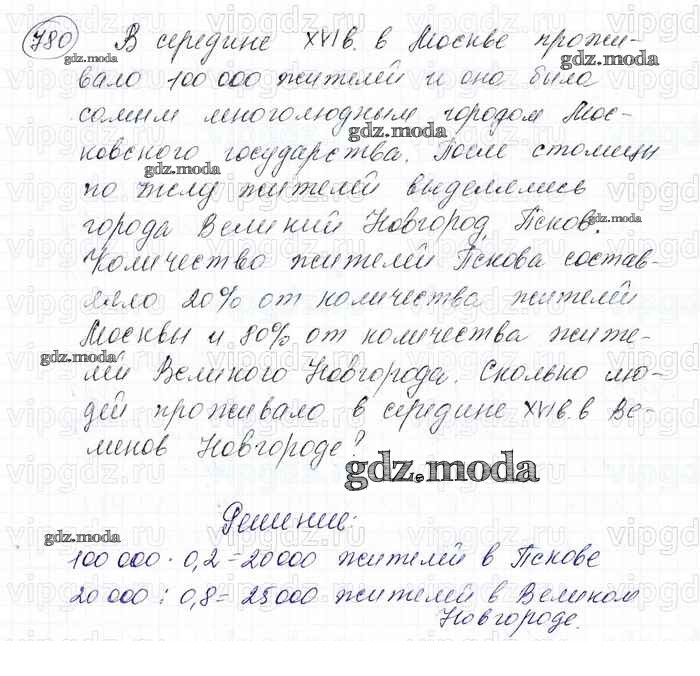 780 В середине XVI в. в Москве прожи-
вало 100 000 жителей и она была
самым многолюдным городом Мос-
ковского государства. После столицы
по числу жителей выделялись
города Великий Новгород, Псков.
Количество жителей Пскова состав-
ляло 20% от количества жителей
Москвы и 80% от количества жите-
лей Великого Новгорода. Сколько лю-
дей проживало в середине XVI в. в Ве-
ликов Новгороде?
gdz.moda
Решение:
100 000 · 0,2 = 20000 жителей в Пскове
20 000 : 0,8 = 25000 жителей в Великом
Новгороде.